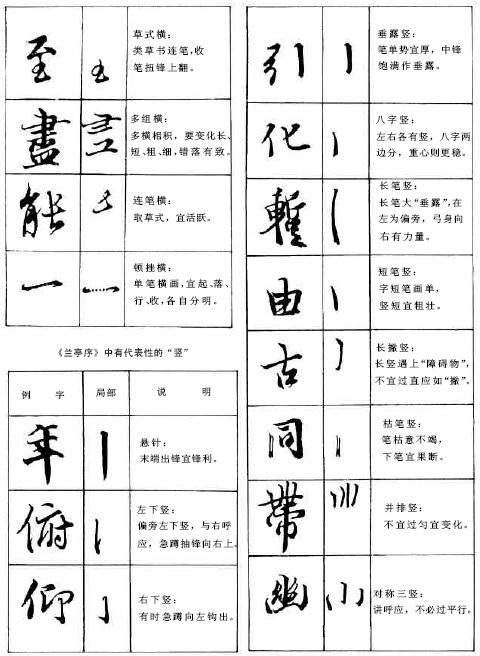 至
草式横：
类草书连笔，收
笔扭锋上翻。
盡
多组横：
多横相积，要变化长、
短、粗、细，错落有致。
能
连笔横：
取草式，宜活跃。
一
顿挫横：
单笔横画，宜起、落、
行、收，各自分明。
《兰亭序》中有代表性的“竖”
例 字 局部 说 明
年
悬针：
末端出锋宜锋利。
俯
左下竖：
偏旁左下竖，与右呼
应，急蹲抽锋向右上。
仰
右下竖：
有时急蹲向左钩出。
引
垂露竖：
笔单势宜厚，中锋
饱满作垂露。
化
八字竖：
左右各有竖，八字两
边分，重心则更稳。
暫
长笔竖：
长笔大“垂露”，在
左为偏旁，弓身向
右有力量。
由
短笔竖：
字短笔画单，
竖短宜粗壮。
古
长撇竖：
长竖遇上“障碍物”，
不宜过直应如“撇”。
同
枯笔竖：
笔枯意不竭，
下笔宜果断。
帶
并排竖：
不宜过匀宜变化。
幽
对称三竖：
讲呼应，不必过平行。